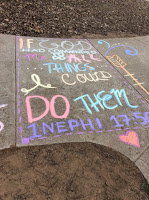 IF GOD
HAD COMMANDED
ME TO DO ALL
THINGS
I COULD
DO THEM
1 NEPHI 17:50